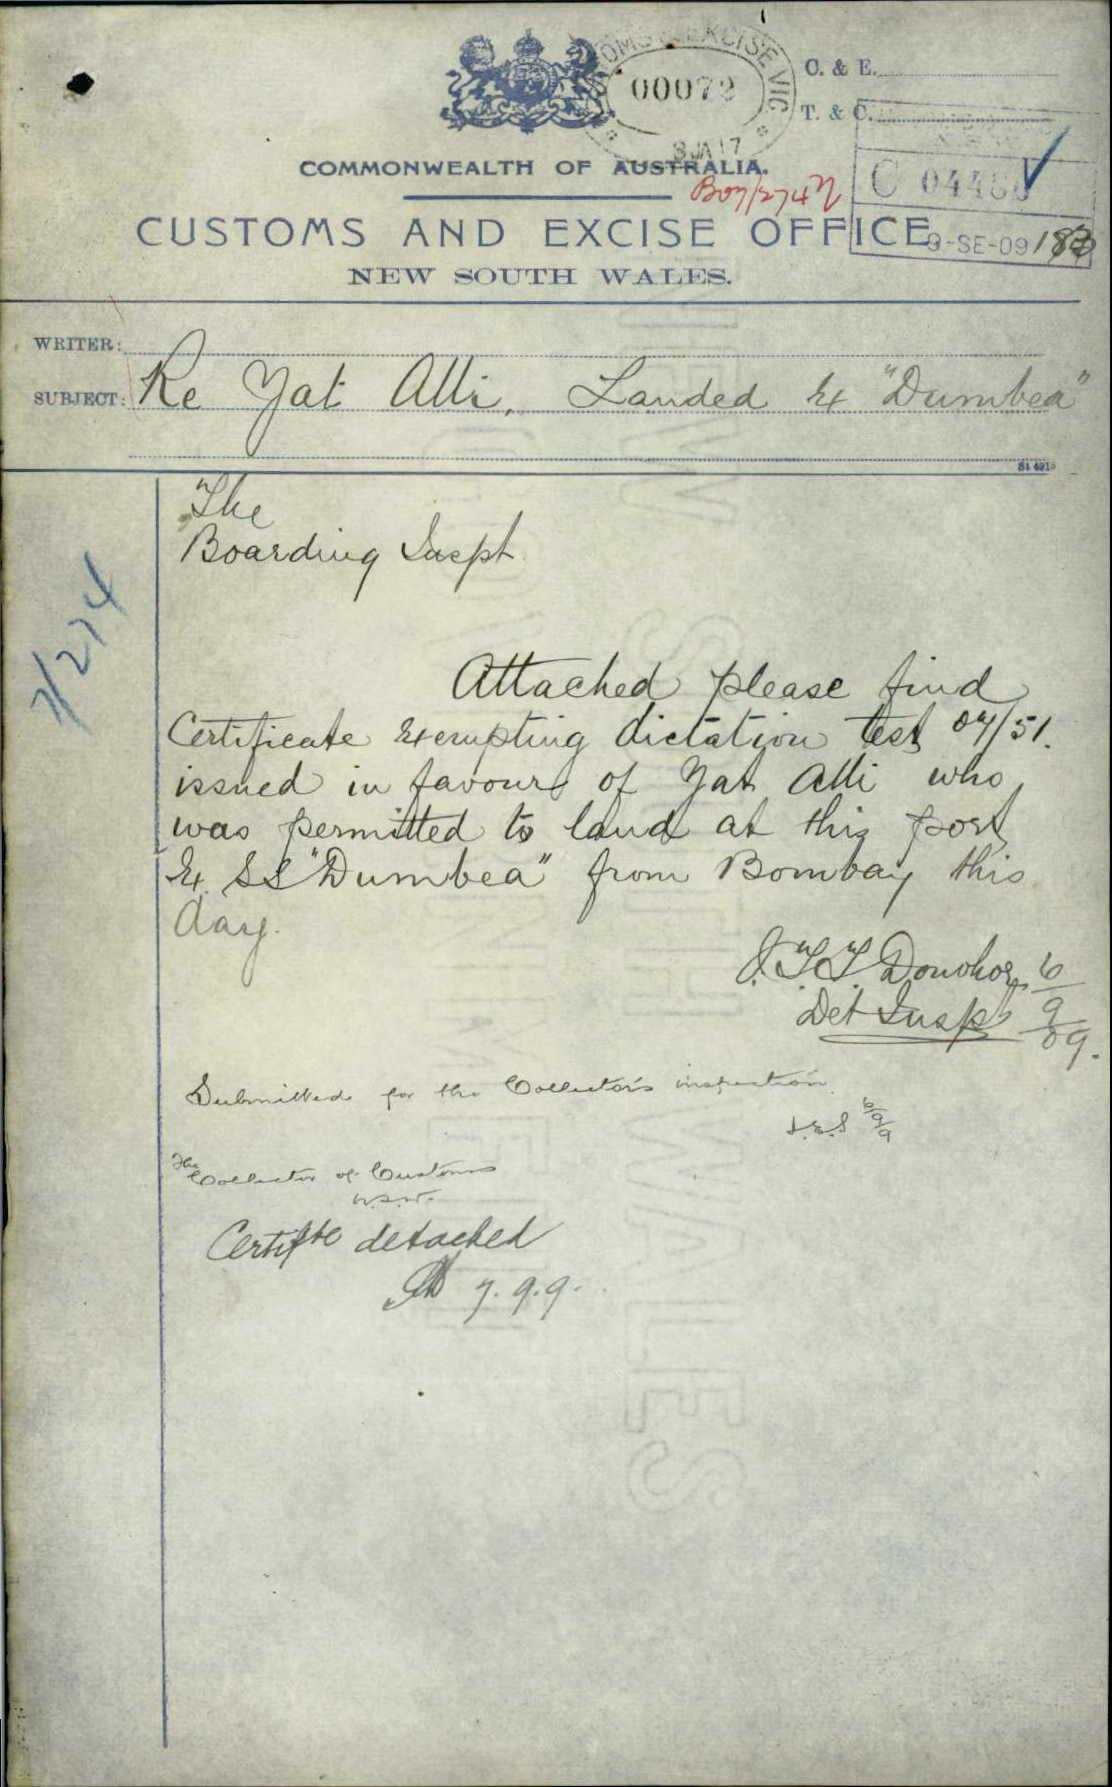 CUSTOMS & EXCISE VIC
00072
3 JA 17
C. & E.
T. & C.
COMMONWEALTH OF AUSTRALIA.
B07/274
C 0448
9-SE-09
CUSTOMS AND EXCISE OFFICE
NEW SOUTH WALES.
WRITER:
SUBJECT: Re Yat Alli, Landed Ex "Dumbea"
The
Boarding Inspt.
7/274
Attached please find
Certificate Exempting dictation test 07/51.
issued in favour of Yat Alli who
was permitted to land at this port
Ex. SS "Dumbea" from Bombay this
day.
J.T.T. Donohoe 6/9/09.
Det Insp
Submitted for the Collector's inspection
6/9/9
The Collector of Customs
N.S.W.
Certifte detached
7.9.9.